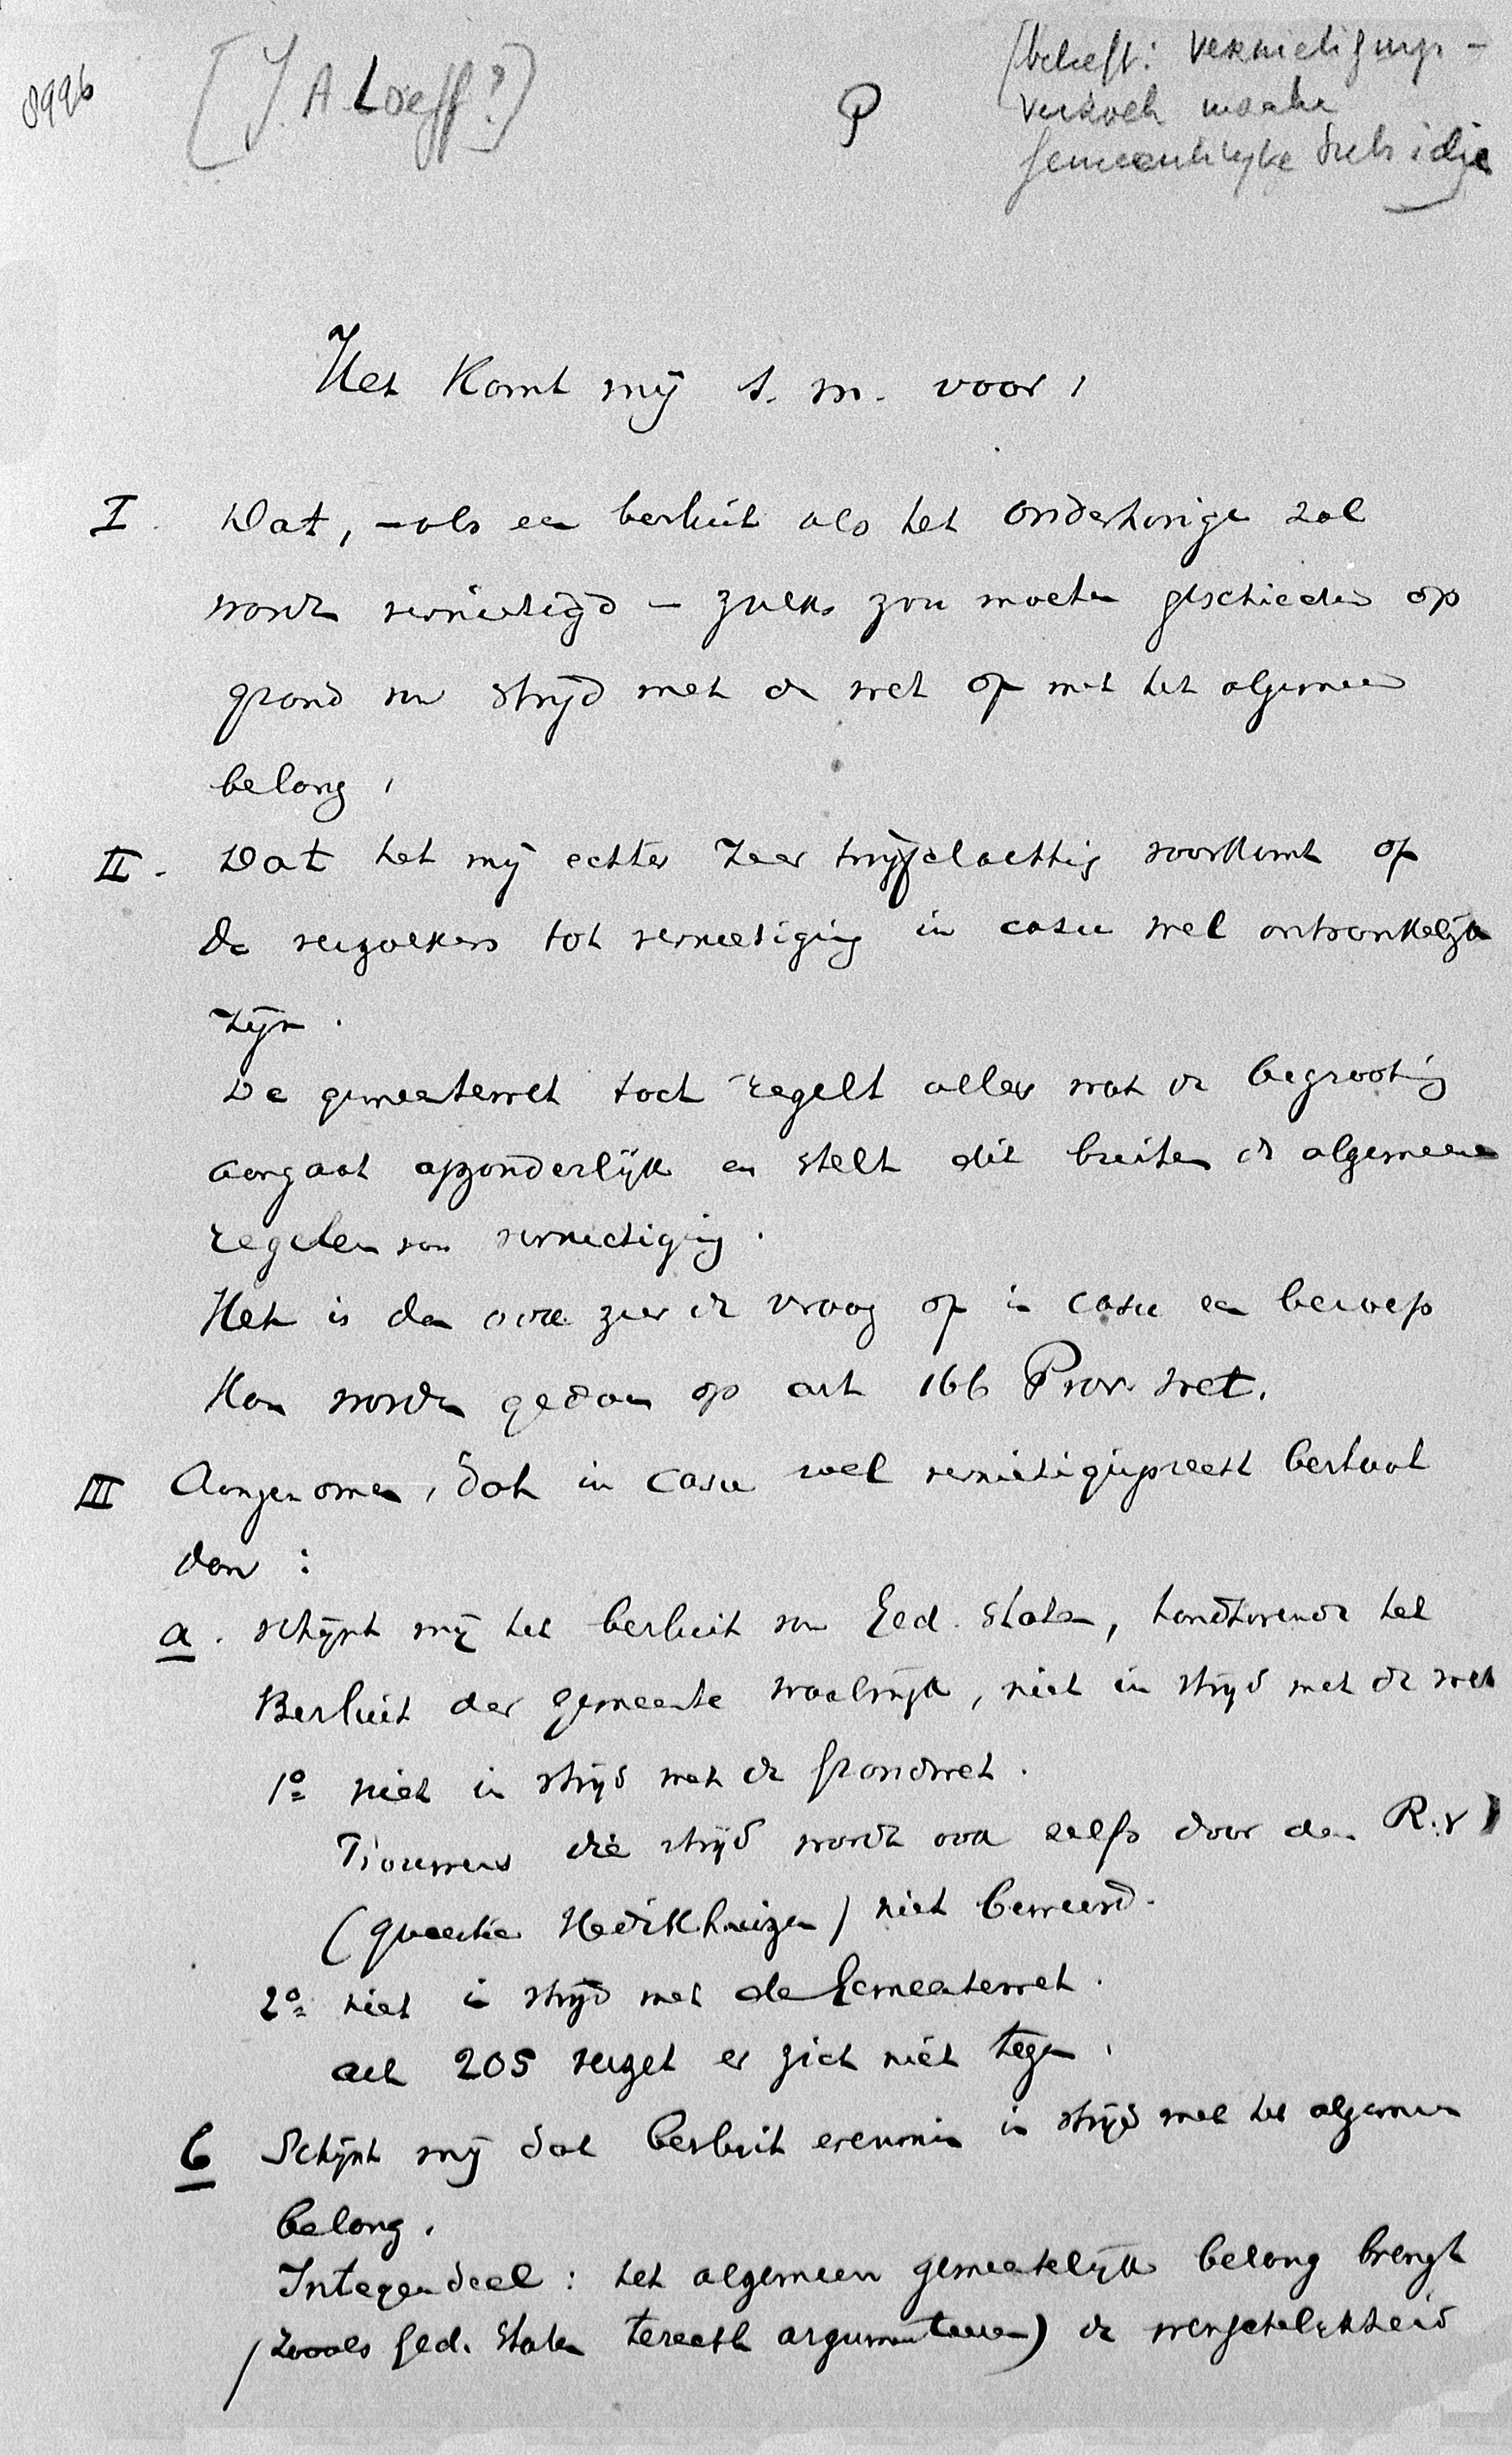 8996
[J. A. Loeff?]
P
[betreft: vernietigings-
verzoek inzake
gemeentelijke subsidie]
Het komt mij s. m. voor,
I. Dat, - als een besluit als het onderhavige zal
wordn vernietigd - zulks zou moeten geschieden op
grond van strijd met de wet of met het algemeen
belang,
II. Dat het mij echter zeer twijfelachtig voorkomt of
de verzoekers tot vernietiging in casu wel ontvankelijk
zijn.
De gemeentewet toch regelt alles wat de begrooting
aangaat afzonderlijk en stelt dit buiten de algemeene
regelen van vernietiging.
Het is dan ook zeer de vraag of in casu een beroep
kan worden gedaan op art 166 Prov. wet.
III Aangenomen, dat in casu wel vernietigingsrecht bestaat
dan :
a. schijnt mij het besluit van Ged. Staten, handhavende het
Besluit der gemeente Waalwijk, niet in strijd met de wet
1o niet in strijd met de Grondwet.
Trouwens die strijd wordt ook zelfs door den R.v
(quaestie Hedikhuizen) niet beweerd.
2o niet in strijd met de Gemeentewet.
art 205 verzet er zich niet tegen.
b Schijnt mij dat besluit evenmin in strijd met het algemeen
belang.
Integendeel : het algemeen gemeentelijk belang brengt
(zooals Ged. Staten terecht argumenteeren) de wenschelijkheid